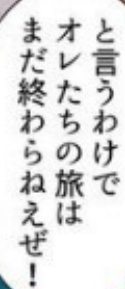 と言うわけで
オレたちの旅は
まだ終わらねえぜ！